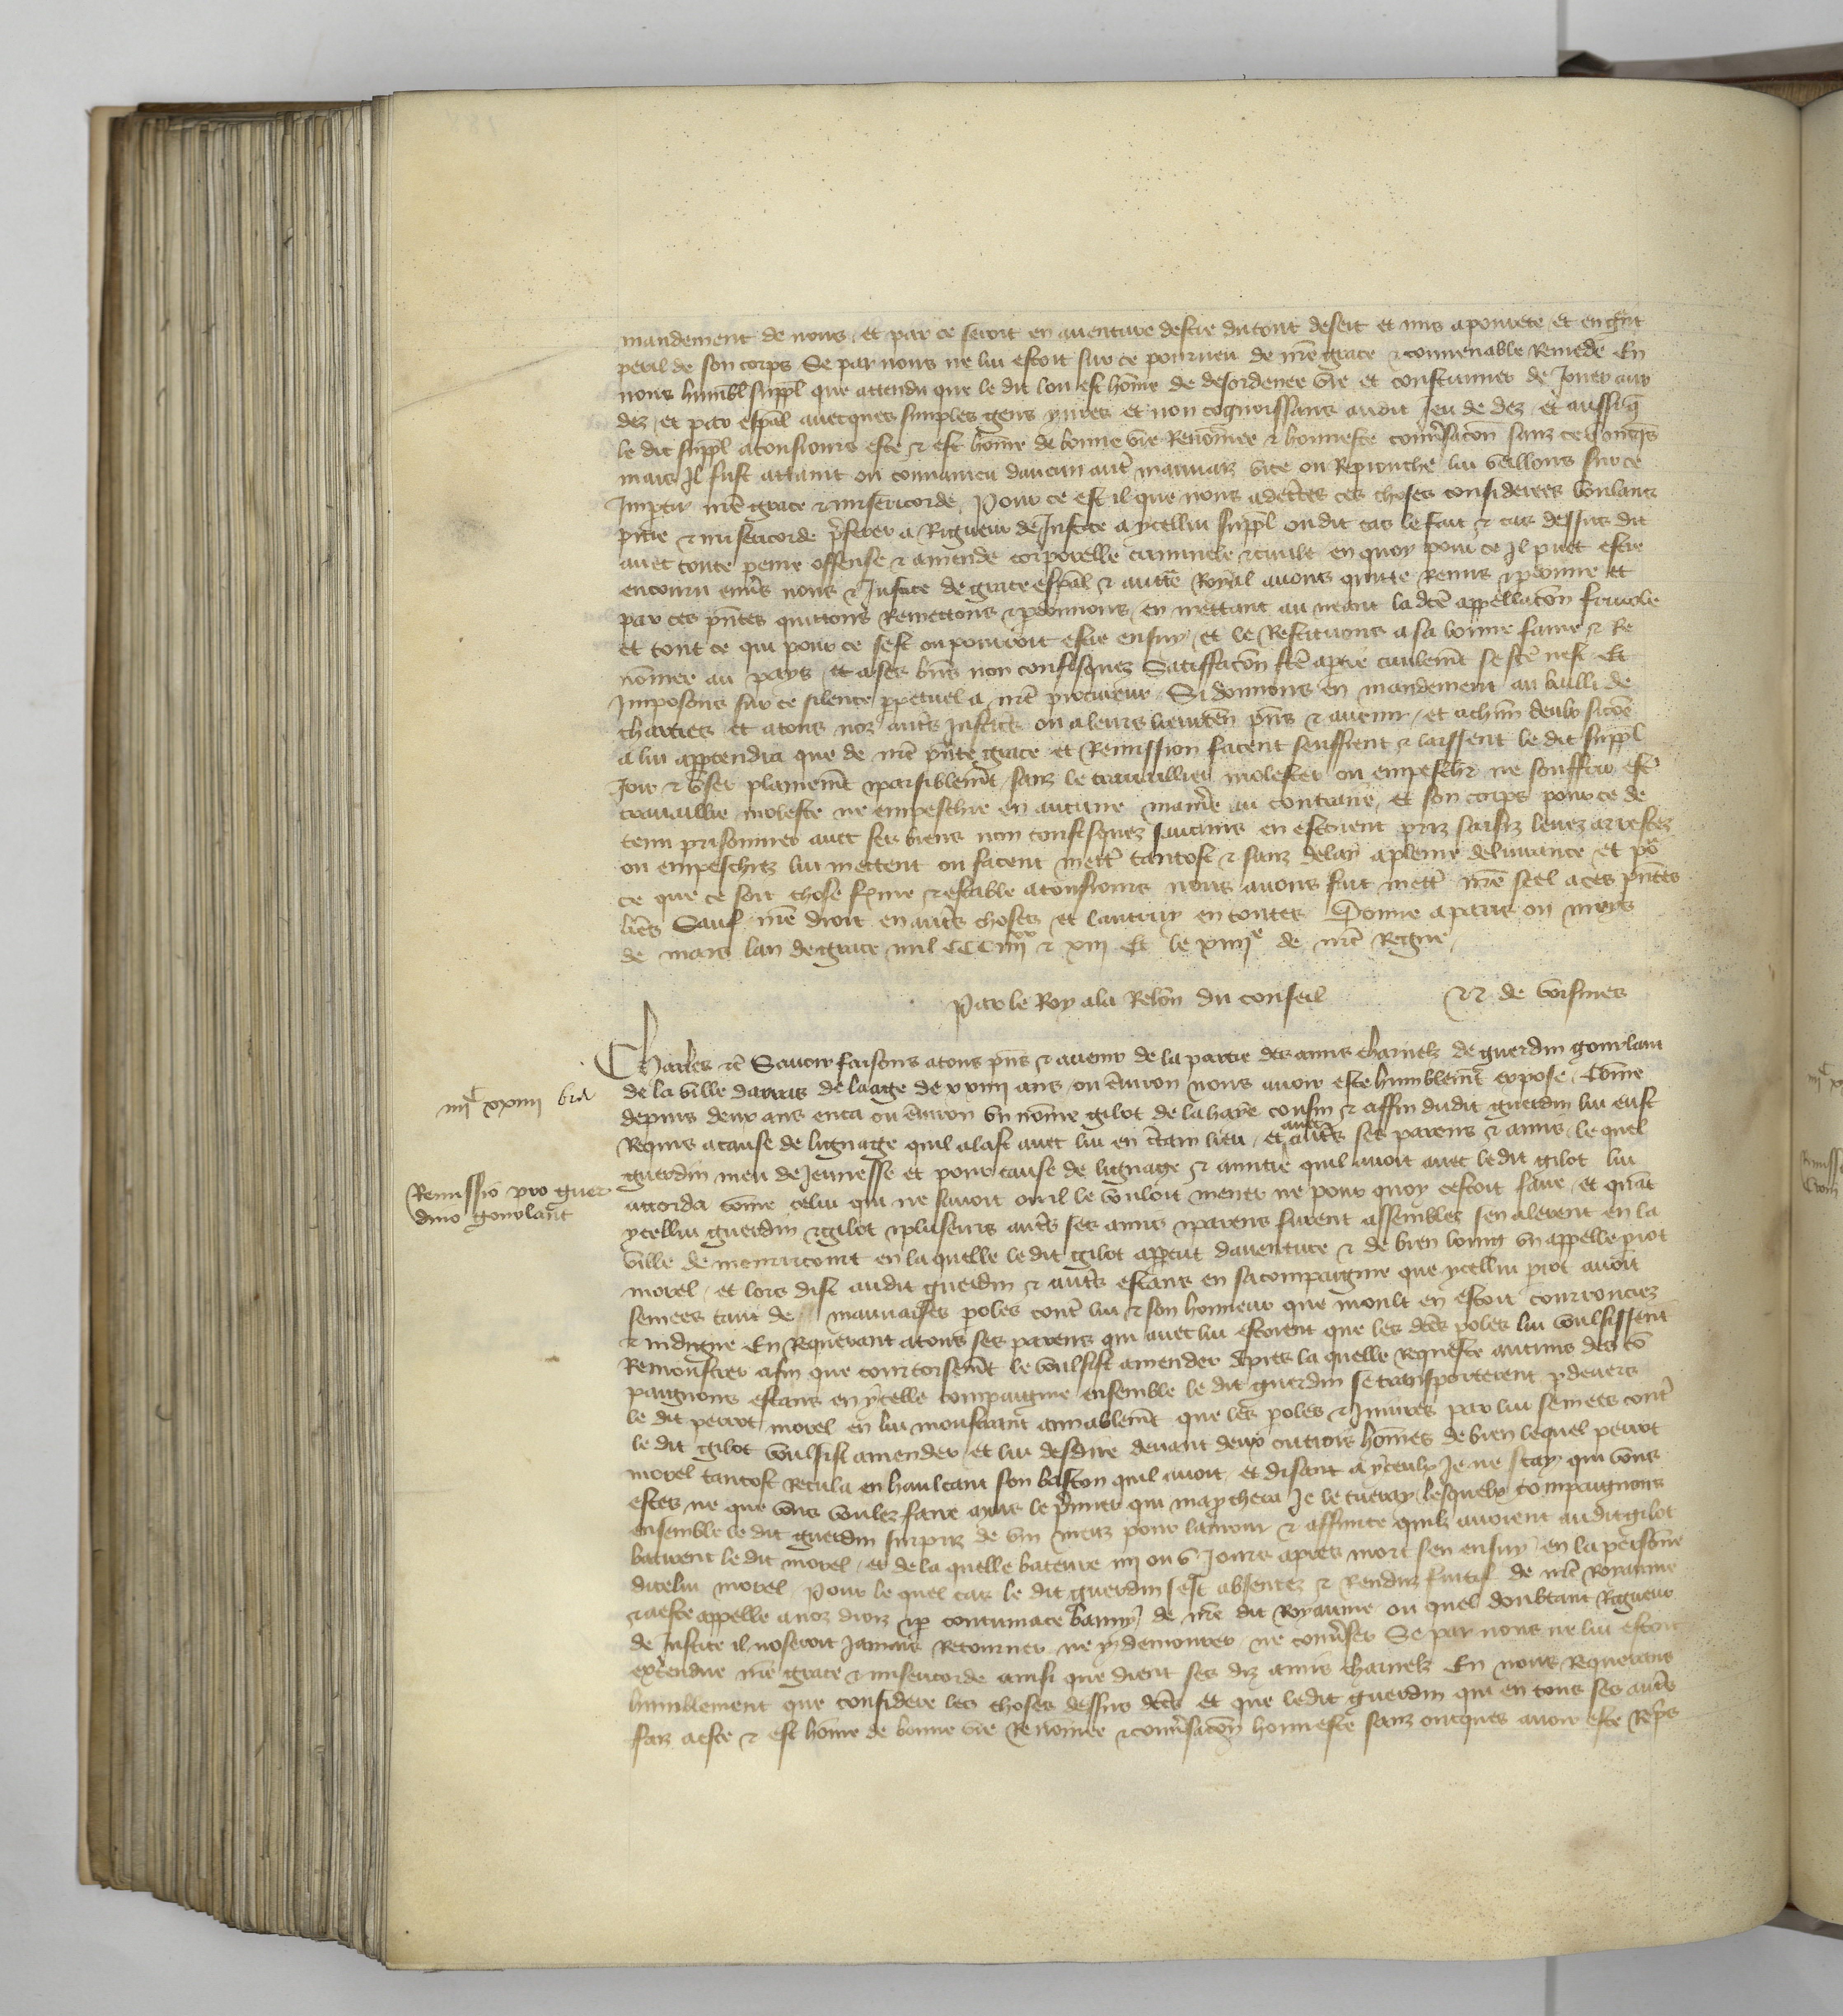 mandement de nous et par ce seroit en aventure destre du tout desert et mis a povrete et en grant
peril de son corps Se par nous ne lui estoit sur ce pourveu de nre grace & convenable remede En
nous humbl suppl que attendu que le dit lou est home de desordenee vie et coustumier de jouer aux
dez et par espal avecques simples gens yvres et non cognoissans audit jeu de dez et aussi q
le dit suppl a tousjours este & est home de bonne vie renomee & honneste conversacon sanz ce
mais il fust attaint ou convaincu daucun autre mauvaiz vice ou reprouche lui veillons sur ce
impartir nre grace & misericorde Pour ce est il que nous adecertes ces choses considerees voulans
pitie & misericorde preferer a rigueur de justice a ycellui suppl ou dit cas le fait & cas dessus dit
avec toute peine offense & amende corporelle criminele & civile en quoy pour ce il puet estre
encouru envers nous & justice de grace espal & auctte Royal avons quitte remis & pdonne et
par ces pntes quittons remettons & pdonnons en mettant au neant la dce appellacon frivole
et tout ce qui pour ce sest ou pourroit estre ensuy et le restituons a sa bonne fame & re
nomee au pays et a ses biens non confisquez Satisfacon fte a ptie civilemt se fte nest Et
imposons sur ce silence ppetuel a nre procureur Si donnons en mandement au bailli de
chartres et a tous noz autres justiciers ou a leurs lieuten pns & avenir et a chun deulx sicoe
a lui appartendra que de nre pnte grace et remission facent seuffrent & laissent le dit suppl
joir & user plainemt & paisiblemt sanz le travaillier molester ou empeschier ne souffrir estre
travaillie moleste ne empeschie en aucune maniere au contraire Et son corps pour ce de
tenu prisonnier avec ses biens non confisquez saucuns en estoient priz saisiz levez arrestez
ou empeschiez lui mettent ou facent mettre tantost & sanz delay a pleine delivrance et po
ce que ce soit chose ferme & estable a tousjours nous avons fait mettre nre seel a ces pntes
lres Sauf nre droit en autres choses et lautruy en toutes Donne a paris ou mois
de mars lan de grace mil CCC iiii xx & xiii Et le xiiiie de nre Regne
Par le Roy a la Relon du conseil de voisines
Charles &c Savoir faisons a tous pns & avenir de la partie des amis charnelz de guerdin gourlant
de la ville darras de laage de xxiiii ans ou environ nous avoir este humblemt expose Come
depuis deux ans enca ou environ un nome gilot de la haye cousin & affin dudit guerdin lui eust
requis a cause de lignage quil alast avec lui en certain lieu et avec autres ses parens & amis le quel
guerdin meu de jeunesse et pour cause de lignage & amitie quil avoit avec ledit gilot lui
accorda come celui qui ne savoit ou il le vouloit mener ne pour quoy cestoit faire et quat
ycellui guerdin & gilot & pluseurs autres ses amis & parens furent assemblez sen alerent en la
ville de mouricourt en la quelle le dit gilot apperceut daventure & de bien loing un appelle piot
morel et lors dist audit guerdin & autres estans en sa compaignie que ycellui piot avoit
semees tant de mauvaises poles contre lui & son honneur que moult en estoit courrouciez
& indigne En requerant a tous ses parens qui avec lui estoient que les dces poles lui voulsissent
remonstrer afin que courtoisemt le voulsist amender apres la quelle requeste aucuns des co
paignons estans en ycelle compaignie ensemble le dit guerdin se transporterent p devers
le dit perrot morel en lui monstrant amiablemt que les poles & injures par lui semees contre
le dit gilot voulsist amender et lui desdire devant deux ou trois homes de bien lequel perrot
morel tantost recula en haulcant son baston quil avoit et disant a yceulx je ne scay qui vous
estes ne que vous voulez faire mais le premier qui mapchera je le tueray lesquelx compaignons
ensemble le dit guerdin surpriz de vin meuz pour lamour & affinite quilz avoient audit gilot
batirent le dit morel et de la quelle bateure iiii ou v jours apres mort sen ensuy en la personne
dicelui morel Pour le quel cas le dit guerdin sest absentez & renduz fuitif de nre Royaume
& a este appelle a noz droiz & p contumace banny de nre dit Royaume ou quel doubtant rigueur
de justice il noseroit jamais retourner ne y demourer ne converser Se par nous ne lui estoit
extendue nre grace & misericorde ainsi que dient ses diz amis charnelz En nous requerans
humblement que considere les choses dessus dces et que ledit guerdin qui en tous ses autres
faiz a este & est home de bonne vie renomee & conversacon honneste sanz oncques avoir este repris
iiiic xxiiii bis
Remissio pro guer
dino gourlant